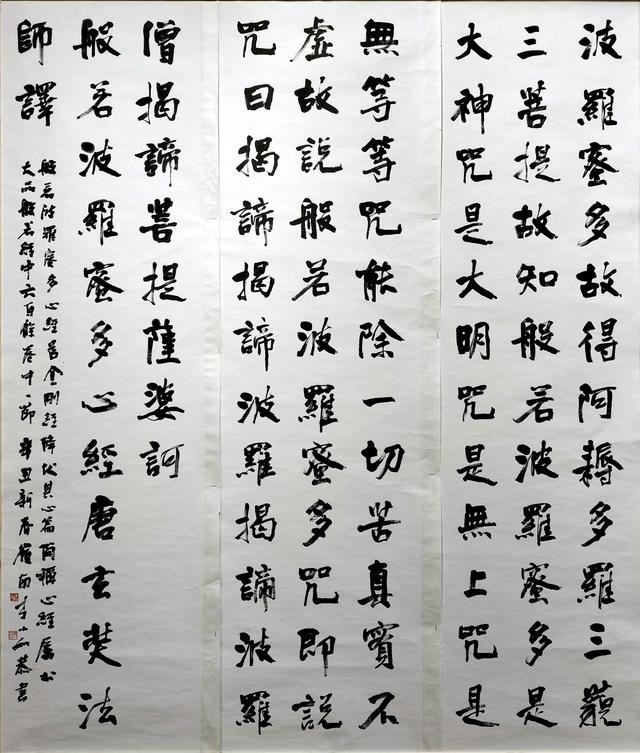 波羅蜜多故得阿耨多羅三藐
三菩提故知般若波羅蜜多是
大神咒是大明咒是無上咒是
無等等咒能除一切苦真實不
虛故說般若波羅蜜多咒即說
咒曰揭諦揭諦波羅揭諦波羅
僧揭諦菩提薩婆訶
般若波羅蜜多心經唐玄奘法
師譯
般若波羅蜜多心經金剛經降伏其心篇簡稱心經屬於
大品般若經中六百餘卷中一節辛丑新春恭書